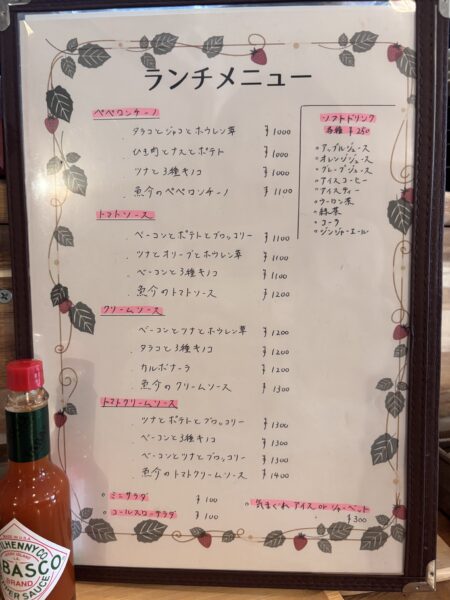 ランチメニュー
ペペロンチーノ
タラコとジャコとホウレン草 ¥1000
ひき肉とナスとポテト ¥1000
ツナと3種キノコ ¥1000
魚介のペペロンチーノ ¥1100
トマトソース
ベーコンとポテトとブロッコリー ¥1100
ツナとオリーブとホウレン草 ¥1100
ベーコンと3種キノコ ¥1100
魚介のトマトソース ¥1200
クリームソース
ベーコンとツナとホウレン草 ¥1200
タラコと3種キノコ ¥1200
カルボナーラ ¥1200
魚介のクリームソース ¥1300
トマトクリームソース
ツナとポテトとブロッコリー ¥1300
ベーコンと3種キノコ ¥1300
ベーコンとツナとブロッコリー ¥1300
魚介のトマトクリームソース ¥1400
ミニサラダ ¥100
コールスローサラダ ¥100
気まぐれアイス or シャーベット
¥300
ソフトドリンク
各種 ¥250
アップルジュース
オレンジジュース
グレープジュース
アイスコーヒー
アイスティー
ウーロン茶
緑茶
コーラ
ジンジャーエール
BRAND